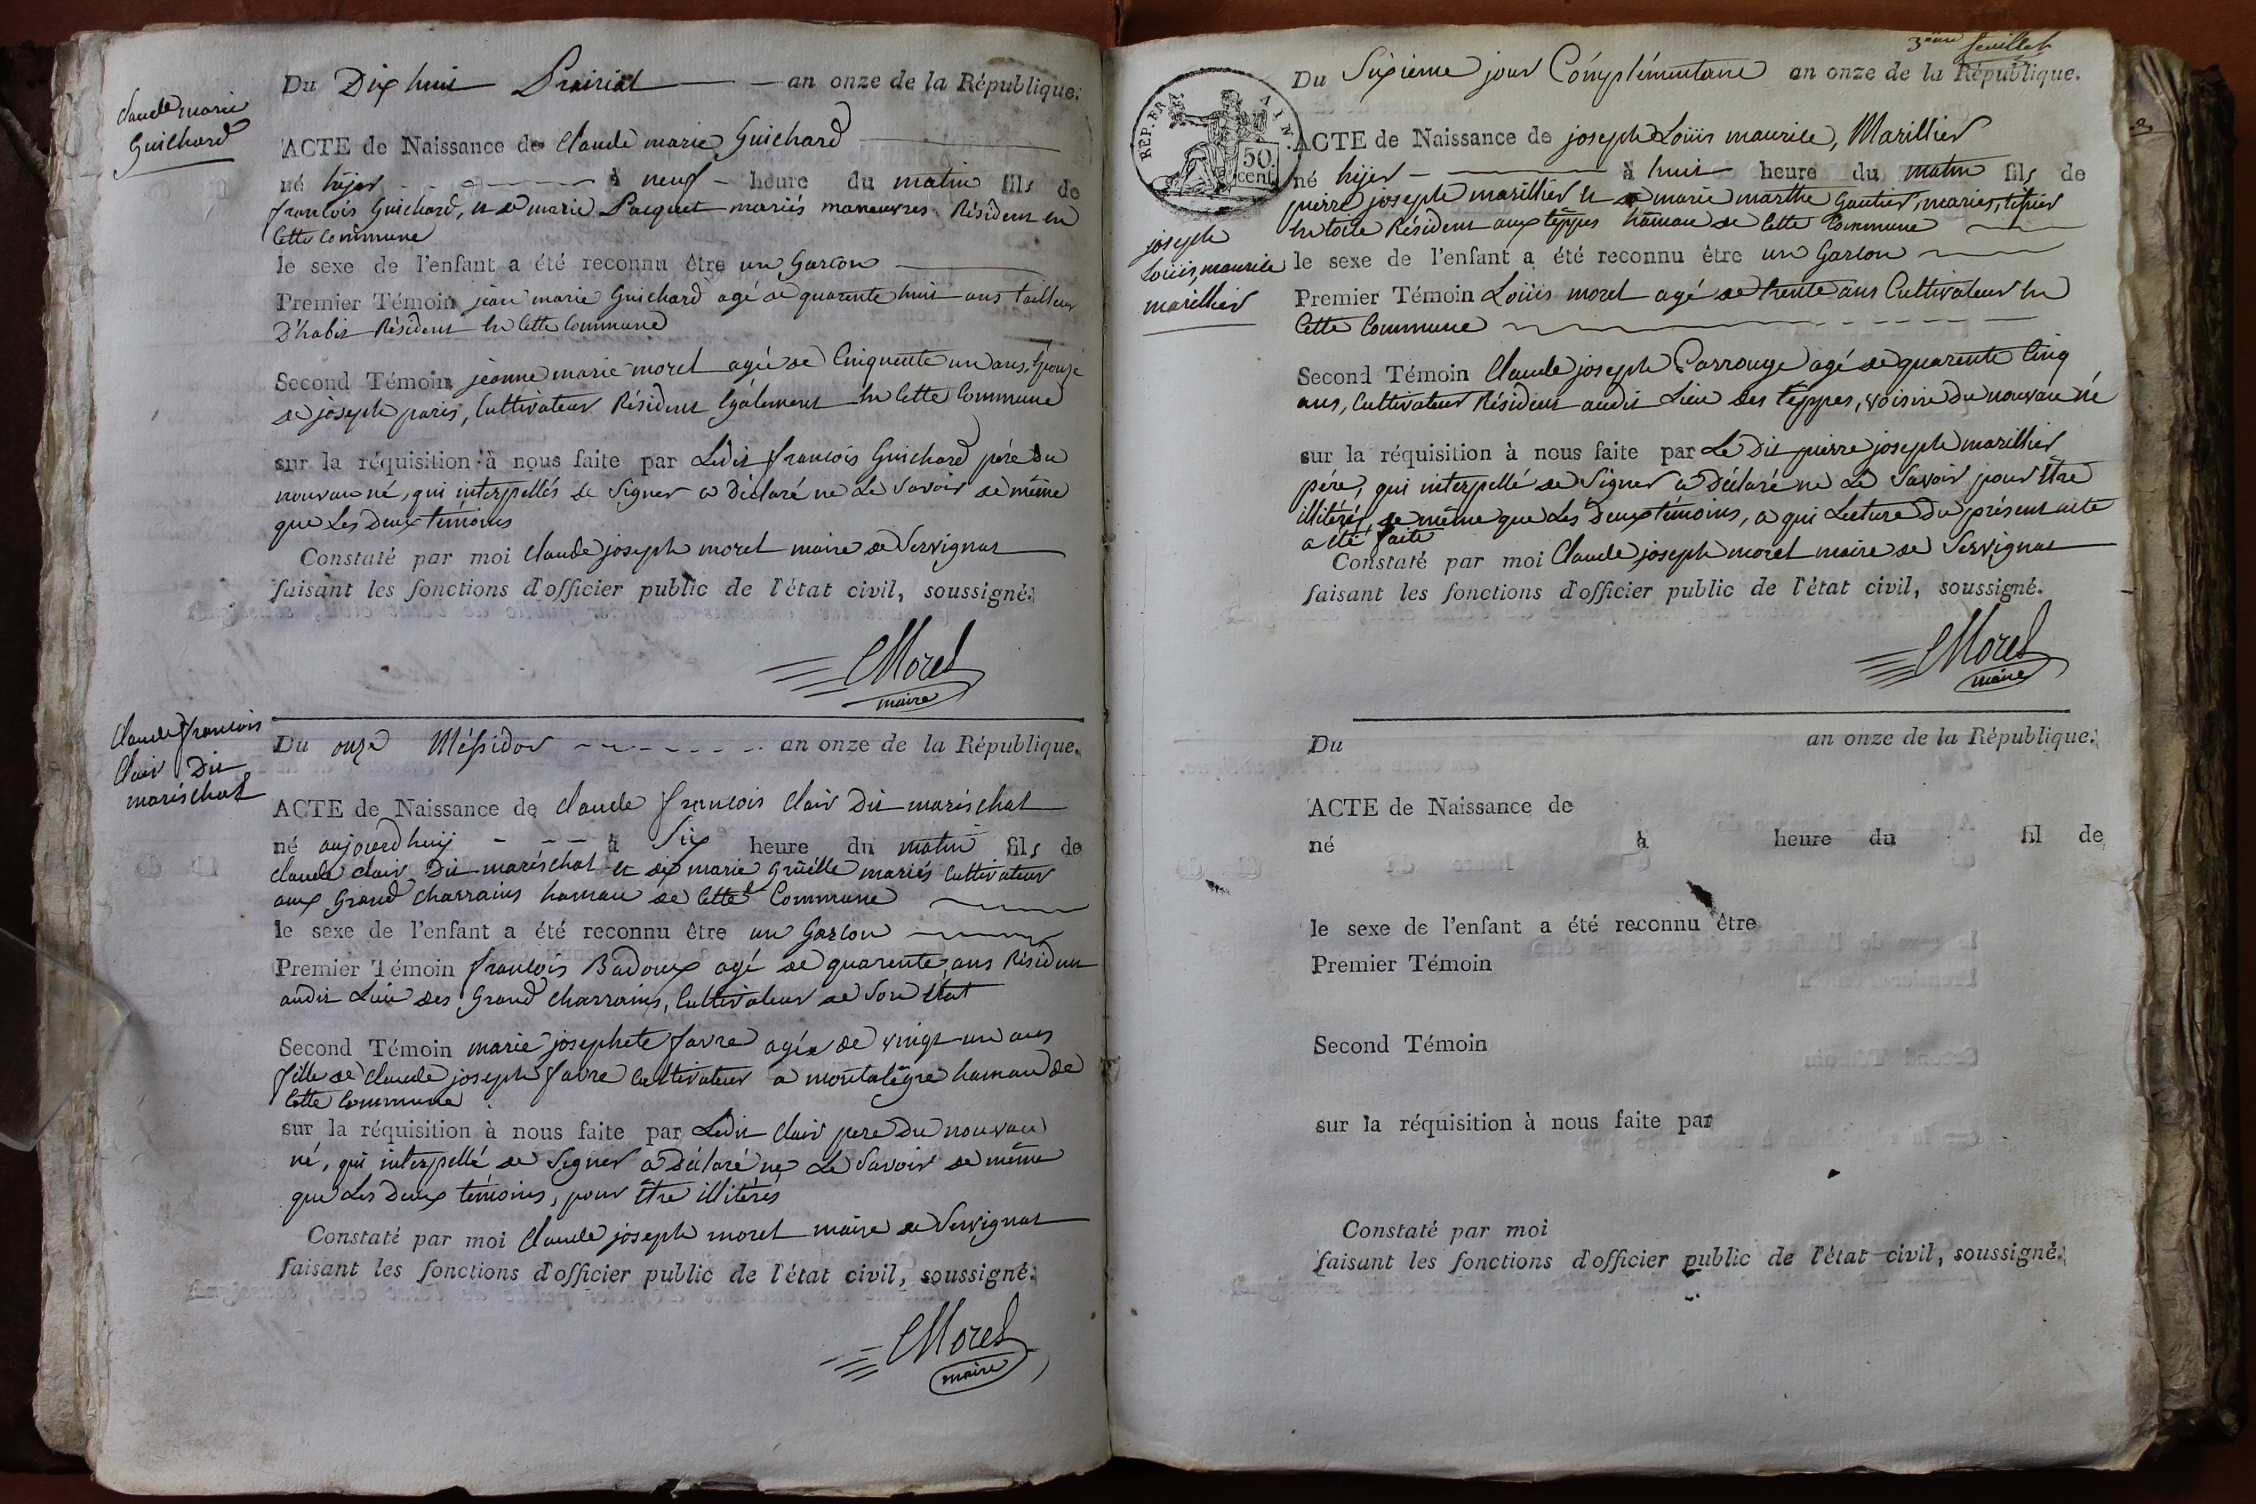 Claude marie
Guichard
Du Dix huit Prairial an onze de la République.
ACTE de Naissance de Claude marie Guichard
né hyer à neuf heure du matin fils de
françois Guichard, et de marie Pacquet mariés maneuvres Résident en
Cette Commune
le sexe de l'enfant a été reconnu être un Garcon
Premier Témoin jean marie Guichard agé de quarente huit ans tailleur
D'habit Résident en Cette Commune
Second Témoin jeanne marie morel agée de Cinquente un ans, Epouse
de joseph paris, Cultivateur Résident Egalement en Cette Commune
sur la réquisition à nous faite par Ledit françois Guichard père du
nouveau né, qui interpellés de Signer a Déclaré ne Le Savoir de même
que Les Deux témoins
Constaté par moi Claude joseph morel maire de Servignat
faisant les fonctions d'officier public de l'état civil, soussigné.
CMorel
maire
Claude françois
Clair Dit
maréschal
Du onze Méssidor an onze de la République.
ACTE de Naissance de Claude françois Clair Dit maréschal
né aujourd'huy à Six heure du matin fils de
Claude Clair Dit maréschal et de marie Gruëlle mariés Cultivateur
aux Grand Charrains hameau de Cette Commune
le sexe de l'enfant a été reconnu être un Garcon
Premier Témoin françois Badoux agé de quarente ans Résident
audit Lieu des Grand Charrains, Cultivateur de Son état
Second Témoin marie josephete favre agée de vingt un ans
fille de Claude joseph favre Cultivateur a montalègre hameau de
Cette Commune
sur la réquisition à nous faite par Ledit Clair pere du nouveau
né, qui interpellé de Signer a Déclaré ne Le Savoir de même
que Les Deux témoins, pour être illitérés
Constaté par moi Claude joseph morel maire de Servignat
faisant les fonctions d'officier public de l'état civil, soussigné.
CMorel
maire
3eme feuillet
Du Sixieme jour Complémentaire an onze de la République.
REP. FRA.
50
cent.
joseph
Loüis, maurice
marillier
ACTE de Naissance de joseph Loüis maurice, Marillier
né hyer à huit heure du matin fils de
pierre joseph marillier et de marie marthe Gautier, mariés, tissier
en toile Résident aux téppes hameau de Cette Commune
le sexe de l'enfant a été reconnu être un Garcon
Premier Témoin Loüis morel agé de trente ans Cultivateur en
Cette Commune
Second Témoin Claude joseph Carrouge agé de quarente Cinq
ans, Cultivateur Résident audit Lieu des téppes, voisin du nouveau né
sur la réquisition à nous faite par Le Dit pierre joseph marillier
pére, qui interpellé de Signer a Déclaré ne Le Savoir pour être
illitéré, de même que Les Deux témoins, a qui Lecture du présent acte
a été faite
Constaté par moi Claude joseph morel maire de Servignat
faisant les fonctions d'officier public de l'état civil, soussigné.
CMorel
maire
Du an onze de la République.
ACTE de Naissance de
né à heure du fil de
le sexe de l'enfant a été reconnu être
Premier Témoin
Second Témoin
sur la réquisition à nous faite par
Constaté par moi
faisant les fonctions d'officier public de l'état civil, soussigné.